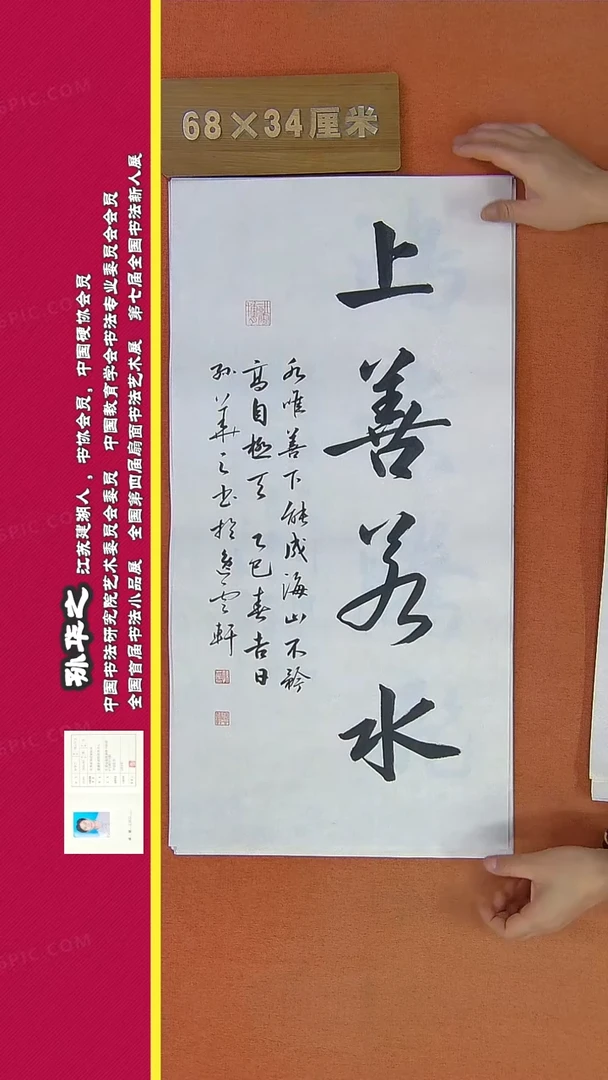 68×34厘米
上善若水
水唯善下能成海山不矜
高自极天 乙巳春吉日
孙华之书于逸云轩
孙华之 江苏建湖人，书协会员，中国硬协会员
中国书法研究院艺术委员会委员 中国教育学会书法专业委员会会员
全国首届书法小品展 全国第四届扇面书法艺术展 第七届全国书法新人展